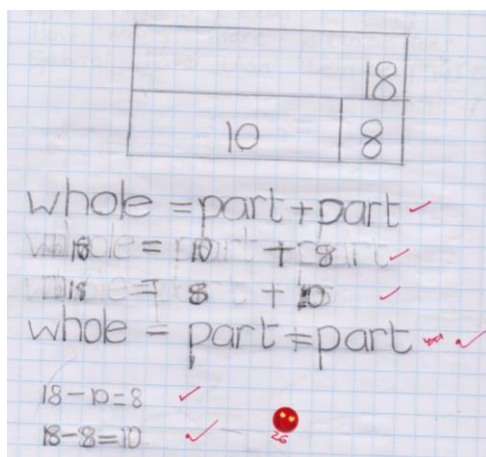 18
10 8
whole = part + part
18 = 10 + 8
18 = 8 + 10
whole = part = part
18 - 10 = 8
18 - 8 = 10
26